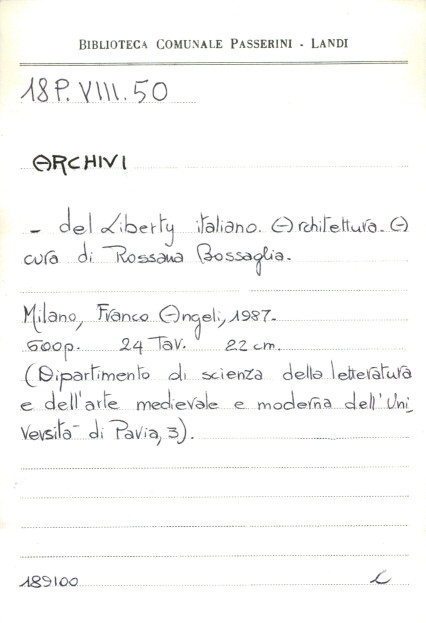 BIBLIOTECA COMUNALE PASSERINI - LANDI
18P.VIII.50
ARCHIVI
- del Liberty italiano. Architettura. A
cura di Rossana Bossaglia.
Milano, Franco Angeli, 1987.
600p. 24 Tav. 22 cm.
(Dipartimento di scienza della letteratura
e dell'arte medievale e moderna dell'Uni_
versità di Pavia, 3).
189100 L